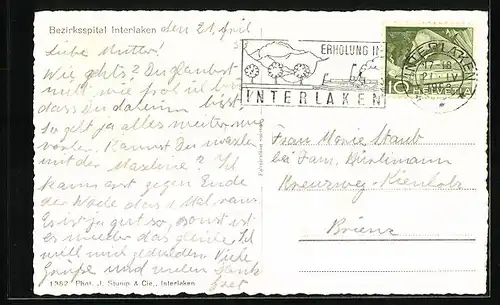 Bezirksspital Interlaken den 21. April
Liebe Mutter!
Wie gehts? Du glaubst
nicht, wie froh ich bin
dass Du daheim bist
So geht ja alles weiter wie
vorher. Kannst Du waschen
mit der Maschine? Ich
kann erst gegen Ende
der Woche das 1. Mal raus
Es ist ja gut so, sonst ist
es wieder das gleiche. Ich
will mich gedulden. Viele
Grüsse und vielen Dank
1362 Phot. J. Stump & Cie., Interlaken
ERHOLUNG IN
INTERLAKEN
INTERLAKEN
21. IV
10 HELVETIA
Frau Marie Staub
bei Fam.
Kreuzweg-Kienholz
Brienz